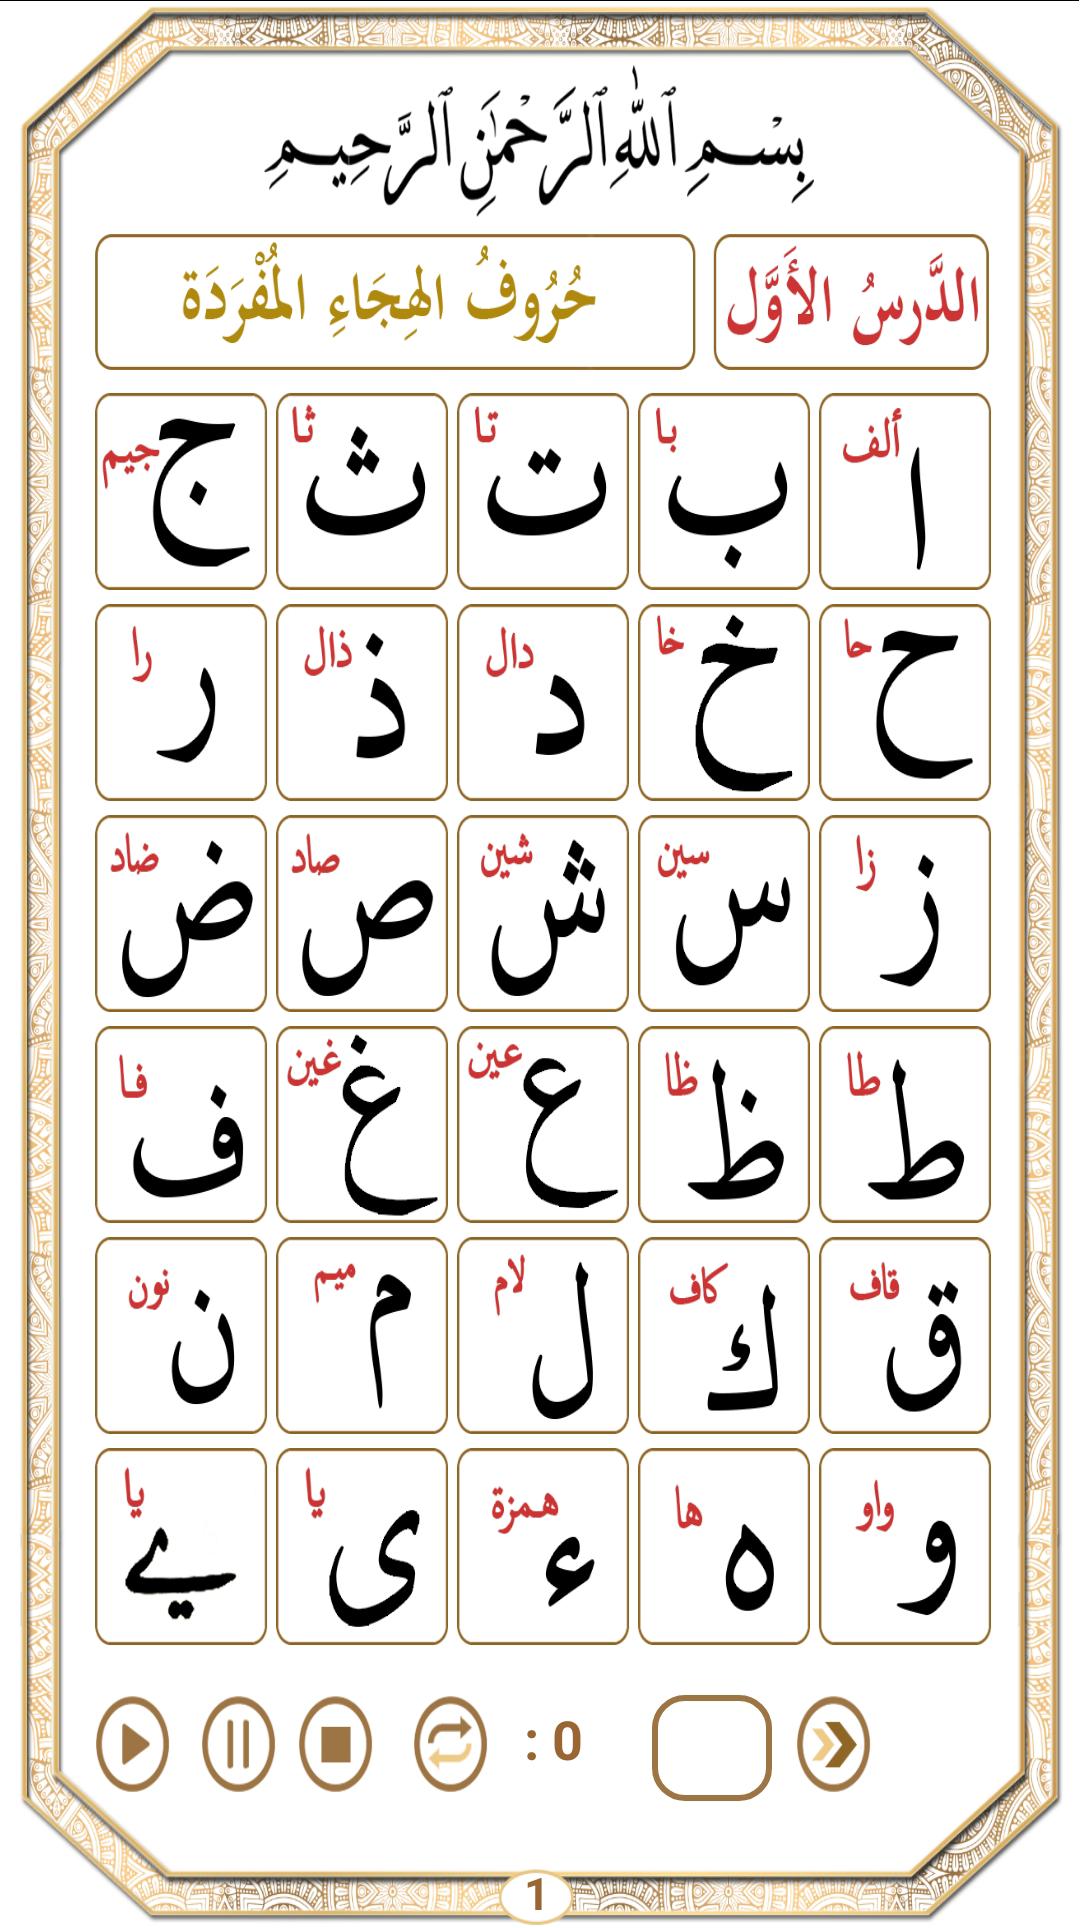 بِسْمِ ٱللَّهِ ٱلرَّحْمَٰنِ ٱلرَّحِيمِ
الدَّرسُ الأَوَّل حُرُوفُ الهِجَاءِ المُفْرَدَة
ألف ا با ب تا ت ثا ث جيم ج
حا ح خا خ دال د ذال ذ را ر
زا ز سين س شين ش صاد ص ضاد ض
طا ط ظا ظ عين ع غين غ فا ف
قاف ق كاف ك لام ل ميم م نون ن
واو و ها ه همزة ء يا ى يا ے
: 0
1